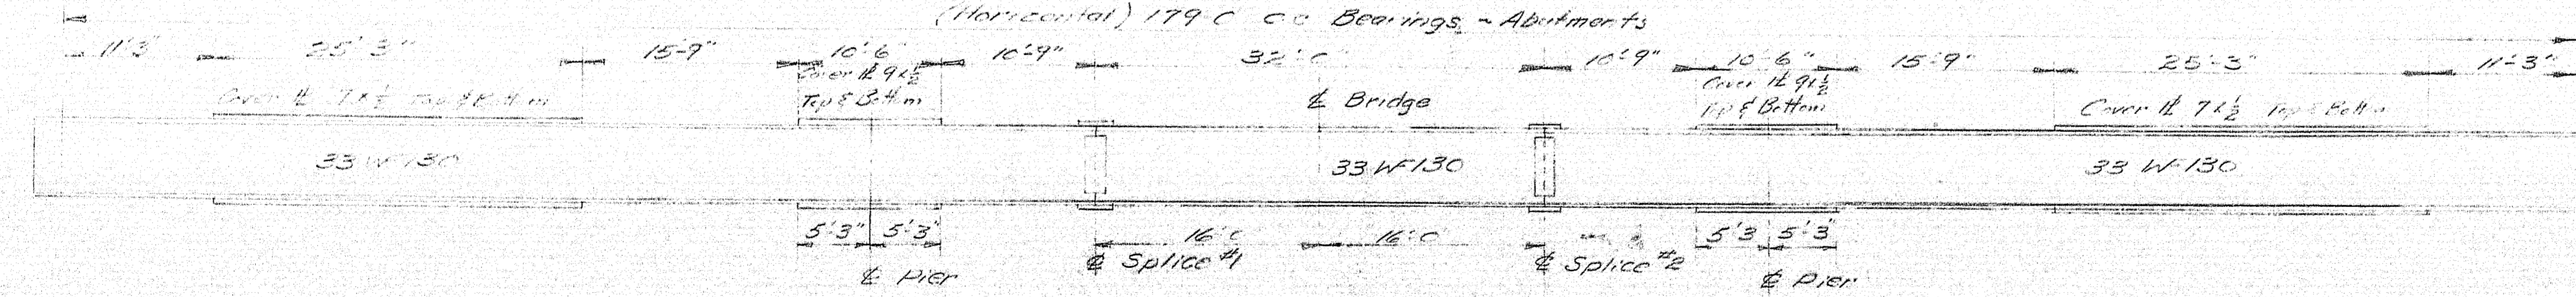 (Horizontal) 179'-0" c.c. Bearings - Abutments
11'-3" 25'-3" 15'-9" 10'-6" 10'-9" 32'-0" 10'-9" 10'-6" 15'-9" 25'-3" 11'-3"
Cover ℔ 9x½ Cover ℔ 9x½
Cover ℔ 7x½ Top & Bottom Top & Bottom ℄ Bridge Top & Bottom Cover ℔ 7x½ Top & Bottom
33 WF 130 33 WF 130 33 WF 130
5'-3" 5'-3" 16'-0" 16'-0" 5'-3 5'-3"
℄ Splice #1 ℄ Splice #2
℄ Pier ℄ Pier